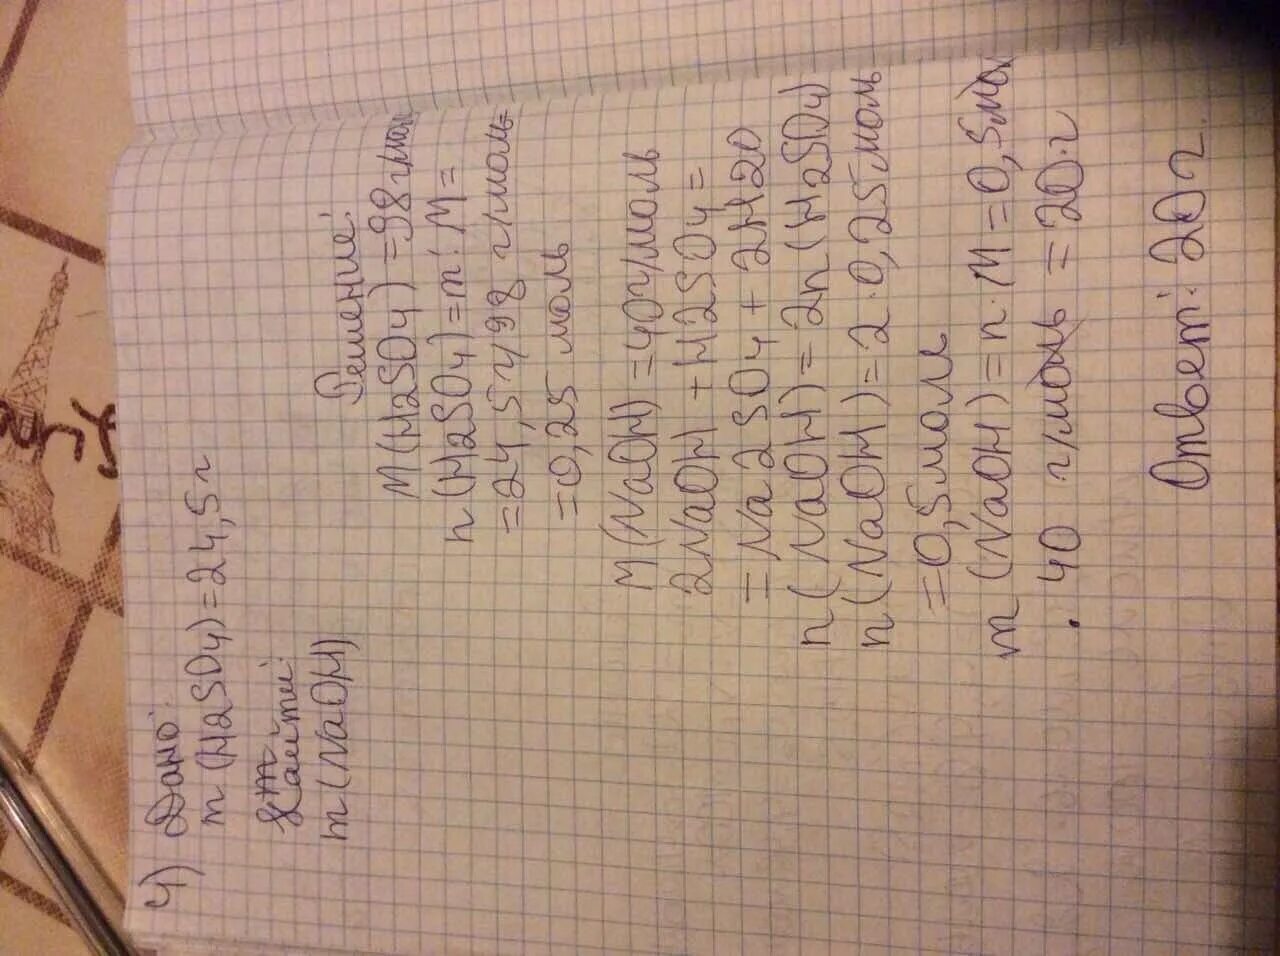 4) Дано:
m(H2SO4)=24,5г
Найти:
m(NaOH)
Решение:
M(H2SO4)=98г/мол
n(H2SO4)=m:M=
=24,5г/98 г/моль=
=0,25 моль
M(NaOH)=40г/моль
2NaOH+H2SO4=
=Na2SO4+2H2O
n(NaOH)=2n(H2SO4)
n(NaOH)=2·0,25моль
=0,5моль
m(NaOH)=n·M=0,5мол
·40 г/моль=20г
Ответ: 20г